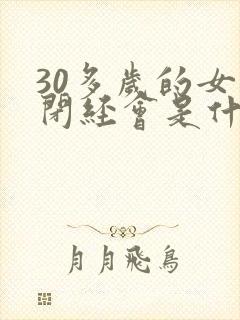 30多歲的女
閉經會是什
月月飛鳥